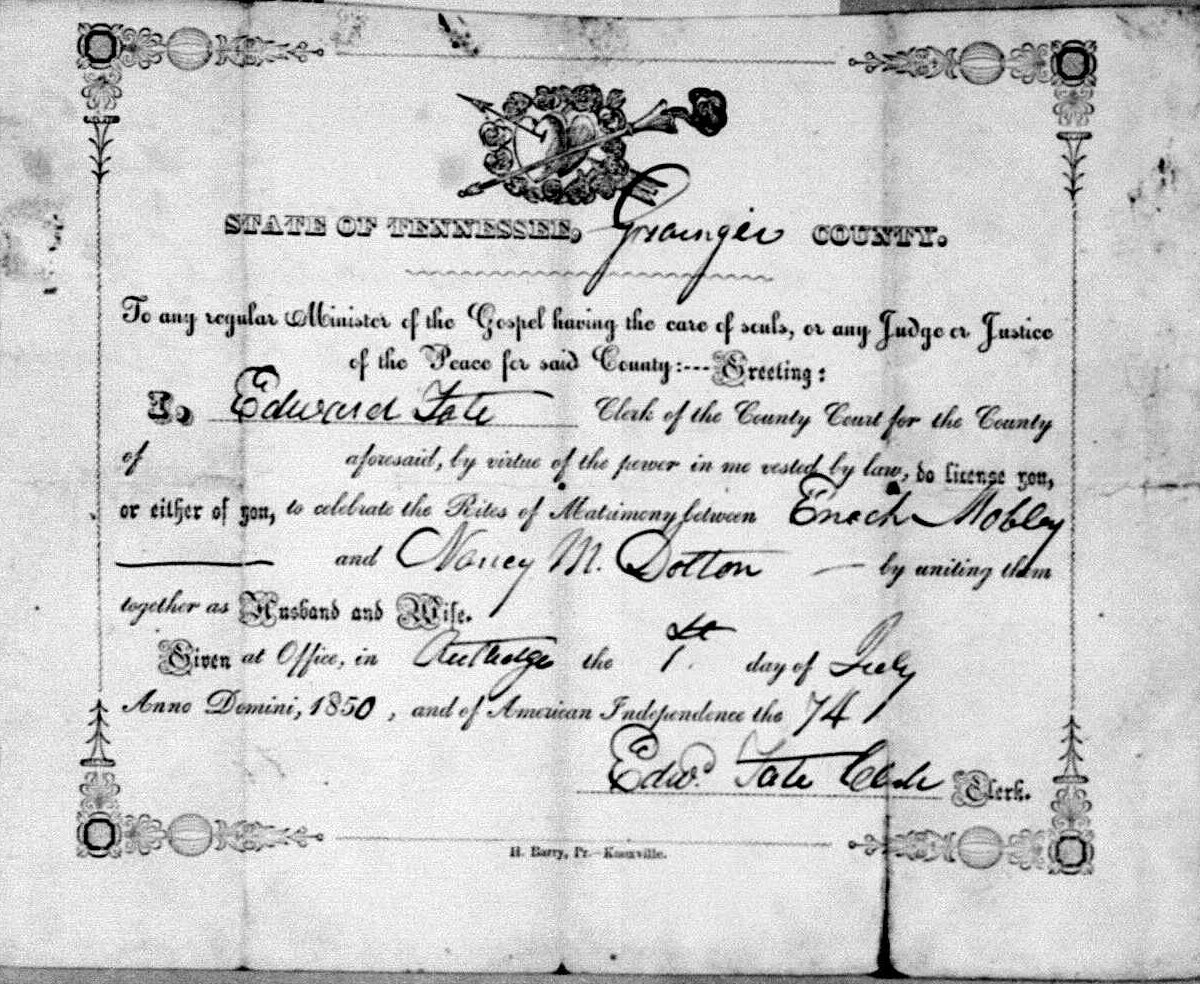 STATE OF TENNESSEE, Grainger COUNTY.
To any regular Minister of the Gospel having the care of souls, or any Judge or Justice
of the Peace for said County:---Greeting:
I, Edward Tate Clerk of the County Court for the County
of aforesaid, by virtue of the power in me vested by law, do license you,
or either of you, to celebrate the Rites of Matrimony between Enoch Mobley
and Nancy M. Dotton by uniting them
together as Husband and Wife.
Given at Office, in the 1st. day of July
Anno Domini, 1850, and of American Independence the 74
Edwd. Tate Clerk Clerk.
H. Barry, Pr.—Knoxville.